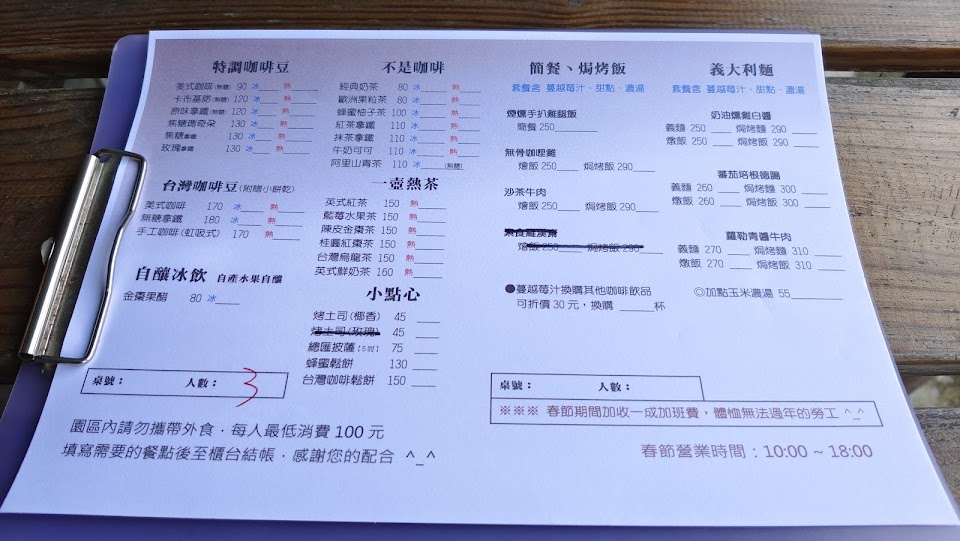 特調咖啡豆
美式咖啡(無糖) 90 冰___ 熱___
卡布基諾(無糖) 120 冰___ 熱___
原味拿鐵(無糖) 120 冰___ 熱___
焦糖瑪奇朵 130 冰___ 熱___
焦糖拿鐵 130 冰___ 熱___
玫瑰拿鐵 130 冰___ 熱___
台灣咖啡豆(附贈小餅乾)
美式咖啡 170 冰___ 熱___
無糖拿鐵 180 冰___ 熱___
手工咖啡(虹吸式) 170 熱___
自釀冰飲 自產水果自釀
金棗果醋 80 冰___
不是咖啡
經典奶茶 80 冰___ 熱___
歐洲果粒茶 80 冰___ 熱___
蜂蜜柚子茶 100 冰___ 熱___
紅茶拿鐵 110 冰___ 熱___
抹茶拿鐵 110 冰___ 熱___
牛奶可可 110 冰___ 熱___
阿里山青茶 110 冰___(無糖)
一壺熱茶
英式紅茶 150 熱___
藍莓水果茶 150 熱___
陳皮金棗茶 150 熱___
桂圓紅棗茶 150 熱___
台灣烏龍茶 150 熱___
英式鮮奶茶 160 熱___
小點心
烤土司(椰香) 45 ___
烤土司(玫瑰) 45 ___
總匯披薩 75 ___
蜂蜜鬆餅 130 ___
台灣咖啡鬆餅 150 ___
桌號： 人數： 3
園區內請勿攜帶外食，每人最低消費 100 元
填寫需要的餐點後至櫃台結帳，感謝您的配合 ^_^
簡餐、焗烤飯
套餐含 蔓越莓汁、甜點、濃湯
煙燻手扒雞腿飯
簡餐 250____
無骨咖哩雞
燴飯 250____ 焗烤飯 290____
沙茶牛肉
燴飯 250____ 焗烤飯 290____
素食羅漢齋
燴飯 250____ 焗烤飯 290____
●蔓越莓汁換購其他咖啡飲品
可折價 30 元，換購 ______杯
義大利麵
套餐含 蔓越莓汁、甜點、濃湯
奶油燻雞白醬
義麵 250 ____ 焗烤麵 290 ____
燉飯 250 ____ 焗烤飯 290 ____
蕃茄培根德腸
義麵 260 ____ 焗烤麵 300 ____
燉飯 260 ____ 焗烤飯 300 ____
羅勒青醬牛肉
義麵 270 ____ 焗烤麵 310 ____
燉飯 270 ____ 焗烤飯 310 ____
◎加點玉米濃湯 55________
桌號： 人數：
※※※ 春節期間加收一成加班費，體恤無法過年的勞工 ^_^
春節營業時間：10:00 ~ 18:00